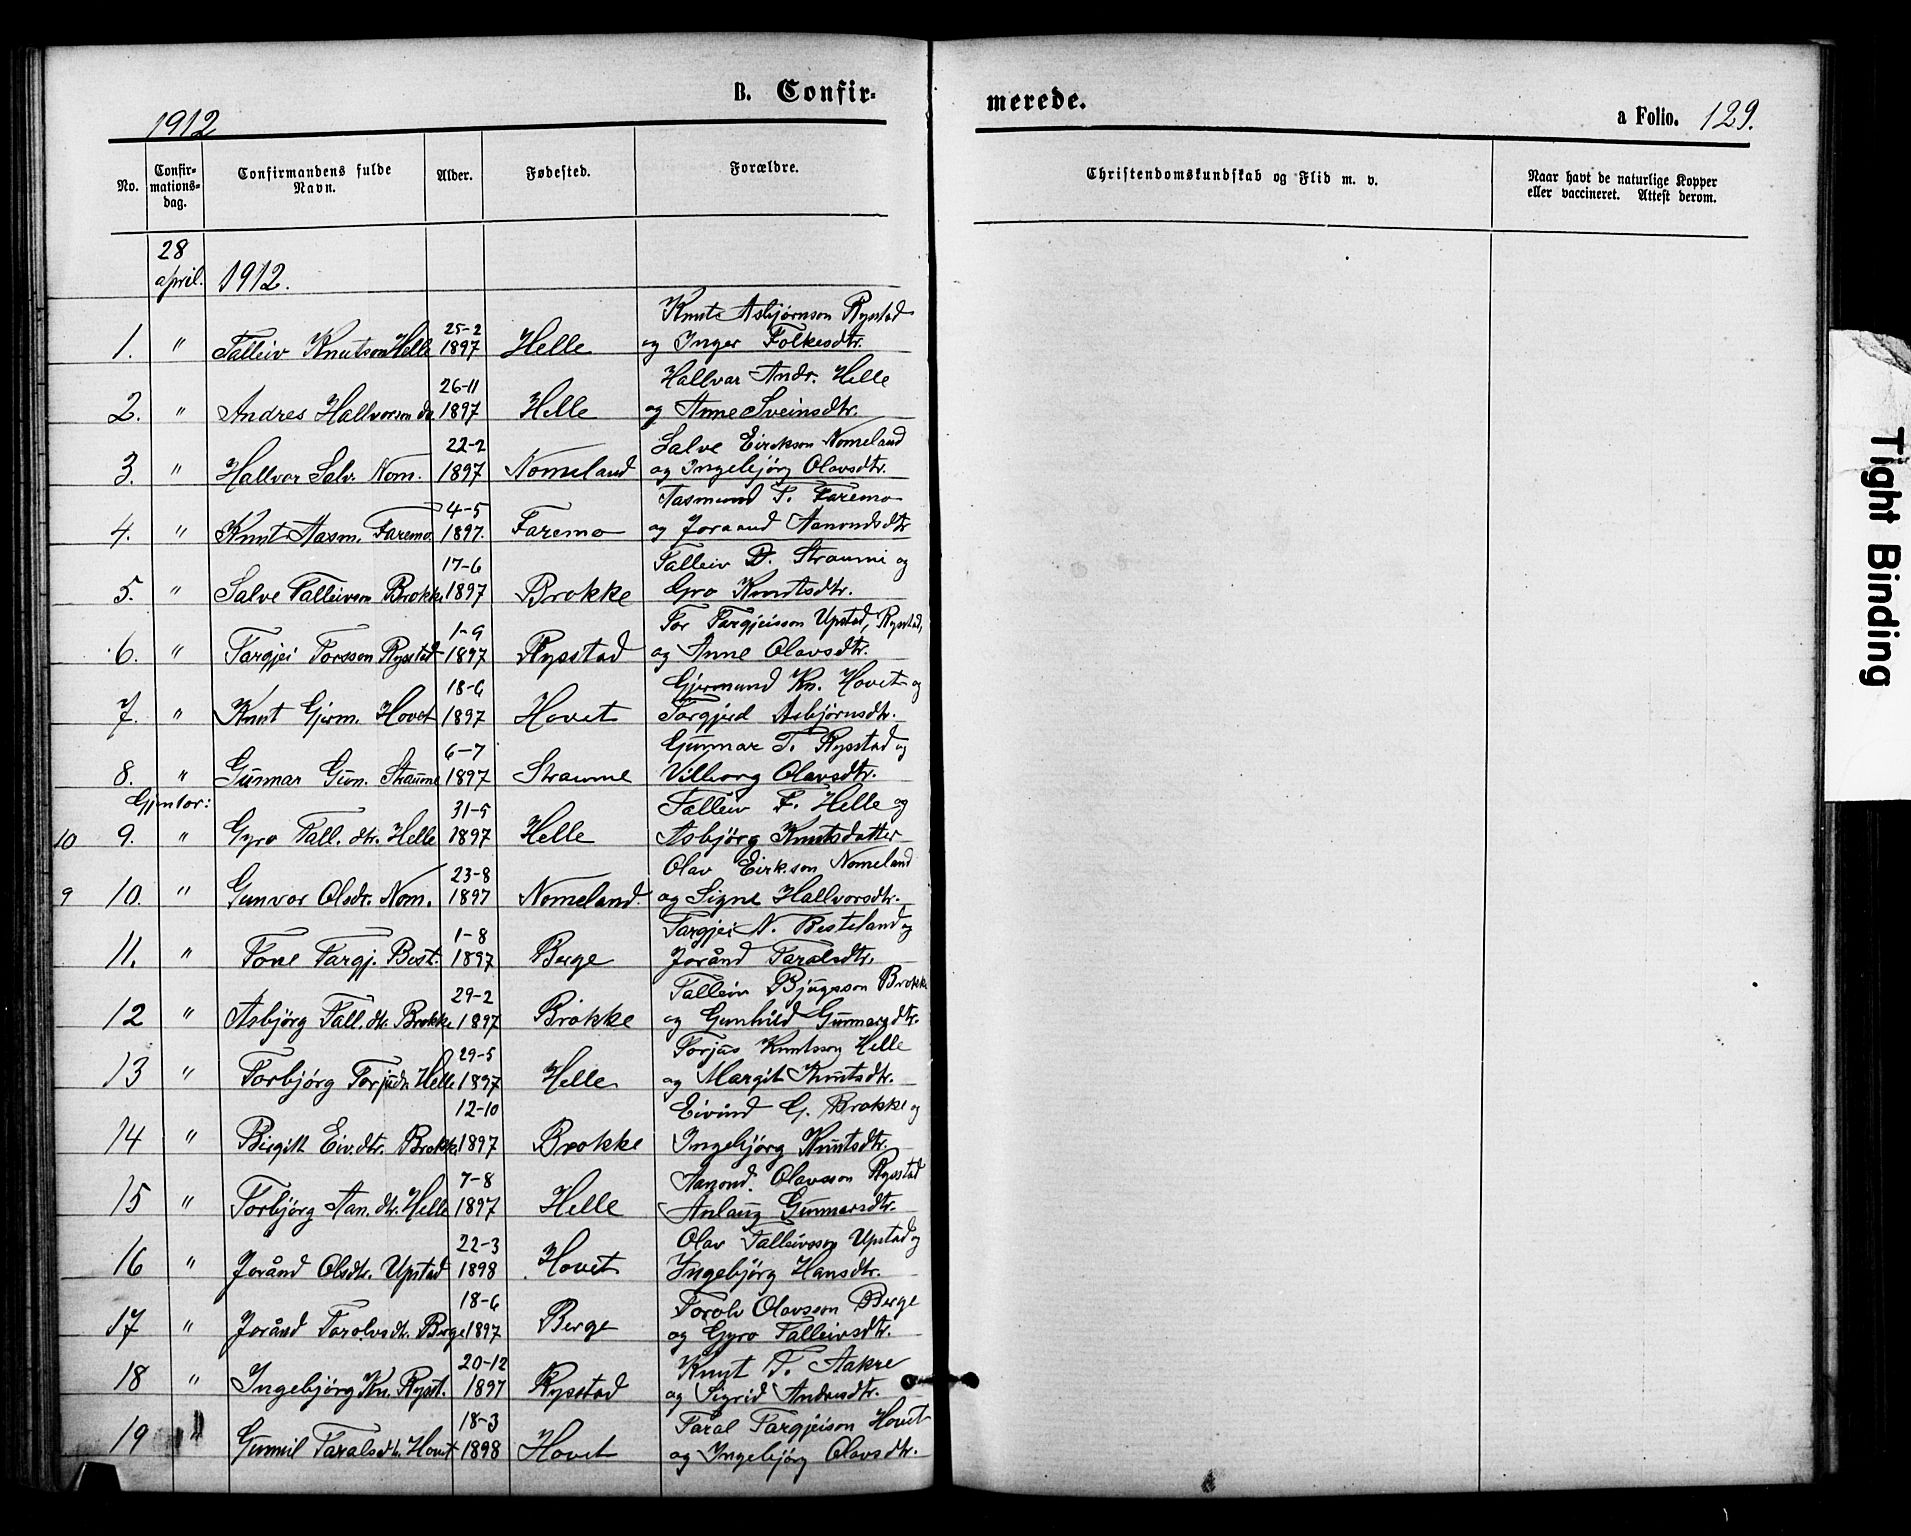 1912
B. Confir-
merede.
a Folio. 129.
No.
Confir-
mations-
dag.
Confirmandens fulde
Navn.
Alder.
Fødested.
Forældre.
Christendomskundskab og Flid m. v.
Naar havt de naturlige Kopper
eller vaccineret. Attest derom.
28
april. 1912.
Knut Asbjørnson Rystad
25-2
1. " Talleiv Knutson Helle 1897 Helle og Inger Folkesdtr.
Hallvar Andr. Helle
26-11
2. " Andres Hallvorson do 1897 Helle og Anne Sveinsdtr.
Salve Eirikson Nomeland
22-2
3. " Hallvor Salv. Nom. 1897 Nomeland og Ingebjörg Olavsdtr.
Aasmund T. Faremo
4-5
4. " Knut Aasm. Faremo. 1897. Faremo og Joraand Aanondsdtr
Talleiv D. Straumi og
17-6
5. " Salve Talleivson Brokke 1897 Brokke Gro Knutsdtr.
Tor Targjeisson Upstad, Rysstad,
1-9
6. " Targjei Torsson Rysstad 1897 Rysstad og Anne Olavsdtr.
Gjermund Kn. Hovet og
18-6
7. " Knut Gjerm. Hovet 1897 Hovet Torgjerd Asbjørnsdtr.
Gunnar T. Rysstad og
6-7
8. " Gunnar Gun. Straume 1897 Straume Vilborg Olavsdtr.
Gjentor:
Talleiv T. Helle og
31-5
10 9. " Gyro Tall. dtr. Helle 1897 Helle Asbjörg Knutsdatter
Olav Eirikson Nomeland
23-8
9 10. " Gunvor Olsdtr. Nom. 1897 Nomeland og Signe Hallvorsdtr.
Targjei N. Besteland og
1-8
11. " Tone Targj. Best. 1897 Berge Joränd Taralsdtr.
Talleiv Bjugsson Brokke
29-2
12 " Asbjörg Tall. dtr. Brokke 1897 Brokke og Gunhild Gunnarsdtr.
Torjus Knutsson Helle
29-5
13 " Torbjörg Torjusdtr Helle 1897 Helle og Margit Knutsdtr.
Eivind G. Brokke og
12-10
14 " Birgitt Eiv.dtr. Brokke 1897 Brokke Ingebjörg Knutsdtr.
Aanond. Olavsson Rysstad
7-8
15 " Torbjörg Aan. dtr. Helle 1897 Helle Anlaug Gunnarsdtr.
Olav Talleivsson Upstad og
22-3
16 " Jorånd Olsdtr. Upstad 1898 Hovet Ingebjörg Hansdtr.
Torolv Olavsson Berge
18-6
17 " Jorånd Torolvsdt. Berge 1897 Berge og Gyro Talleivsdtr.
Knut T. Aakre
20-12
18 " Ingebjörg Kn. Rysst. 1897 Rysstad og Sigrid Andresdtr.
Taral Targjeison Hovet
18-3
19 " Gunnil Taralsdt. Hovet 1898 Hovet og Ingebjörg Olavsdtr.
Tight Binding